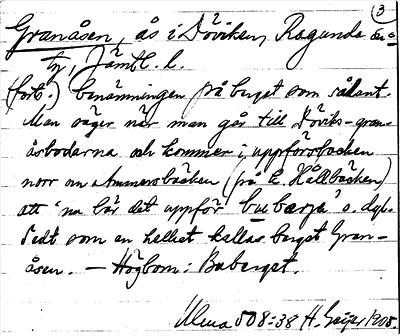 3
Granåsen, ås i Döviken, Ragunda sn
Jämtl. l.
(forts.) benämningen på berget som sådant.
Man säger när man går till Döviks-gran-
åsbodarna och kommer i uppförsbacken
norr om Ammersbäcken (på E. Hällbäcken)
att nu bär det uppför bu barja o. dyl.
Sedt som en helhet kallas berget Gran-
åsen. — Högbom: Buberget.
Ulma 508:38 H. Geijer 1908.